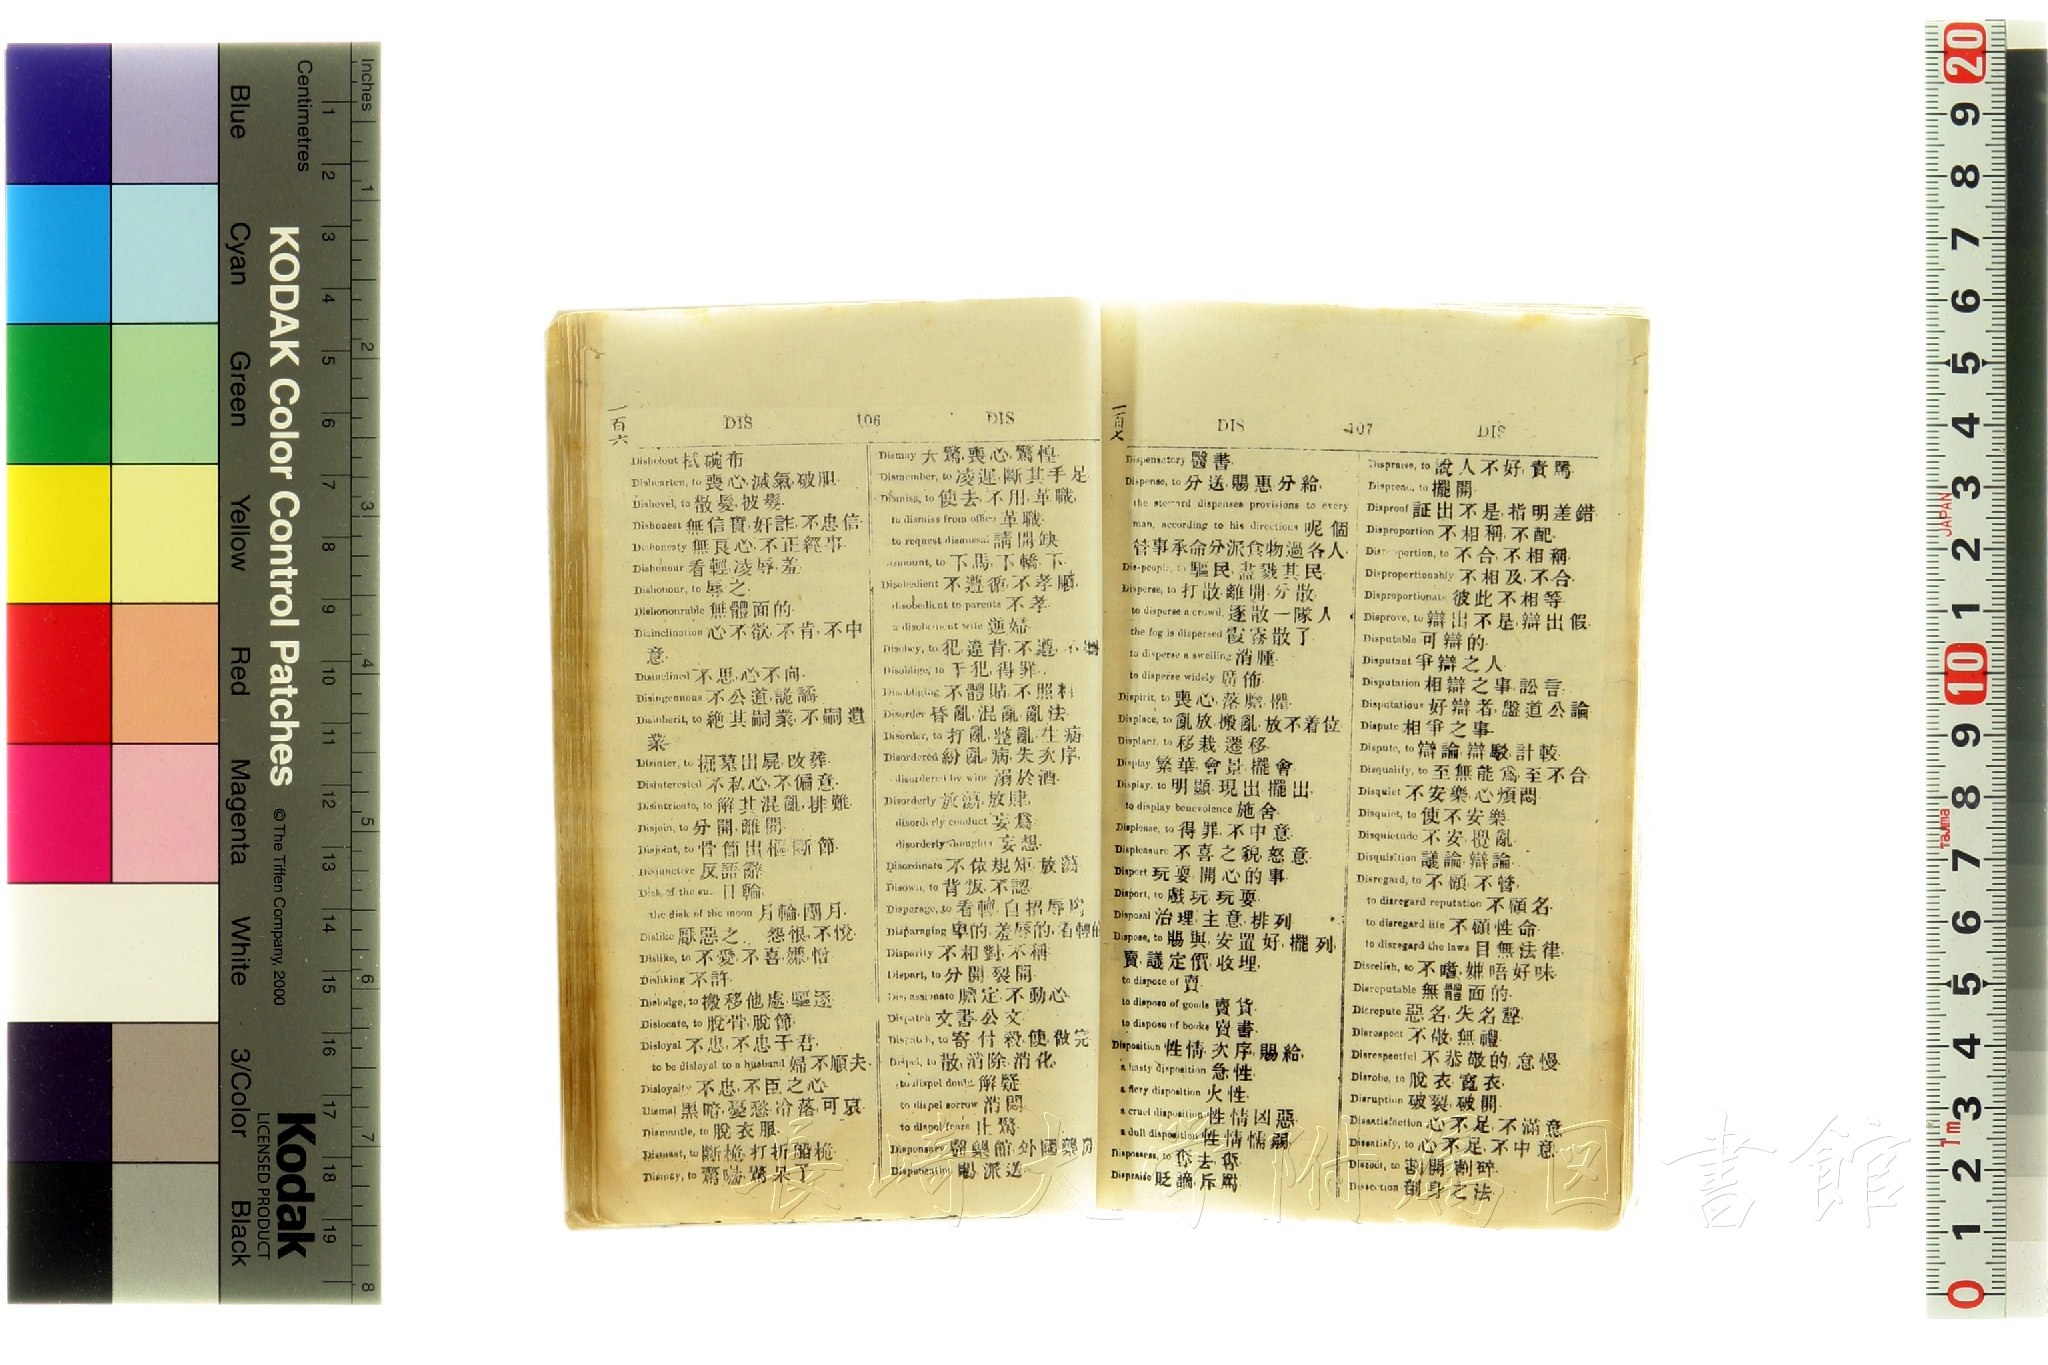 Inches
Centimetres
Blue
Cyan
Green
Yellow
Red
Magenta
White
3/Color
Black
KODAK Color Control Patches © The Tiffen Company, 2000
Kodak
LICENSED PRODUCT
一百六
DIS 106 DIS
Dishclout 拭碗布
Dishearten, to 喪心,滅氣,破胆
Dishevel, to 散髮,披髮
Dishonest 無信實,奸詐,不忠信
Dishonesty 無良心,不正經事
Dishonour 看輕,凌辱,羞
Dishonour, to 辱之
Dishonourable 無體面的
Disinclination 心不欲,不肯,不中
意
Disinclined 不思,心不向
Disingenuous 不公道,詭譎
Disinherit, to 絶其嗣業,不嗣遺
業
Disinter, to 掘墓出屍,改葬
Disinterested 不私心,不偏意
Disintricate, to 解其混亂,排難
Disjoin, to 分開,離開
Disjoint, to 骨節出樞,斷節
Disjunctive 反語辭
Disk of the sun 日輪
the disk of the moon 月輪,團月
Dislike 厭惡之 怨恨,不悅
Dislike, to 不愛,不喜,嫌
Disliking 不許
Dislodge, to 搬移他處,驅逐
Dislocate, to 脫骨,脫節
Disloyal 不忠,不忠于君
to be disloyal to a husband 婦不順夫
Disloyalty 不忠,不臣之心
Dismal 黑暗,憂愁,冷落,可哀
Dismantle, to 脫衣服
Dismast, to 斷桅,打折船桅
Dismay, to 驚嚇,驚呆了
Dismay 大驚,喪心,驚惶
Dismember, to 凌遲,斷其手足
Dismiss, to 使去,不用,革職
to dismiss from office 革職
to request dismissal 請開缺
Dismount, to 下馬,下轎,下
Disobedient 不遵循,不孝順
disobedient to parents 不孝
a disobedient wife 逆婦
Disobey, to 犯,違背,不遵
Disoblige, to 干犯,得罪
Disobliging 不體貼,不照料
Disorder 昏亂,混亂,亂法
Disorder, to 打亂,整亂,生病
Disordered 紛亂,病,失次序
disordered by wine 溺於酒
Disorderly 放蕩,放肆
disorderly conduct 妄爲
disorderly thoughts 妄想
Disordinate 不依規矩,放蕩
Disown, to 背叛,不認
Disparage, to 看輕,自招辱
Disparaging 卑的,羞辱的,看輕的
Disparity 不相對,不稱
Dispart, to 分開,裂開
Dispassionate 膽定,不動心
Dispatch 文書,公文
Dispatch, to 寄付,殺,使,做完
Dispel, to 散,消除,消化
to dispel doubt 解疑
to dispel sorrow 消悶
to dispel fears 止驚
Dispensary 醫藥館,外國藥房
Dispensation 賜,派送
一百七
DIS 107 DIS
Dispensatory 醫書
Dispense, to 分送,賜惠,分給
the steward dispenses provisions to every
man, according to his directions 呢個
管事承命分派食物過各人
Dis-people, to 驅民,盡戮其民
Disperse, to 打散,離開,分散
to disperse a crowd, 逐散一隊人
the fog is dispersed 霞霧散了
to disperse a swelling 消腫
to disperse widely 廣佈
Dispirit, to 喪心,落膽
Displace, to 亂放,搬亂,放不着位
Displant, to 移栽,遷移
Display 繁華,會景,擺會
Display, to 明顯,現出,擺出
to display benevolence 施舍
Displease, to 得罪,不中意
Displeasure 不喜之貌,怒意
Disport 玩耍,開心的事
Disport, to 戲玩,玩耍
Disposal 治理,主意,排列
Dispose, to 賜與,安置好,擺列,
賣,議定價,收埋
to dispose of 賣
to dispose of goods 賣貨
to dispose of books 賣書
Disposition 性情,次序,賜給
a hasty disposition 急性
a fiery disposition 火性
a cruel disposition 性情凶惡
a dull disposition 性情懦弱
Dispossess, to 奪去,奪
Dispraise 貶謫,斥罵
Dispraise, to 說人不好,責罵
Dispread, to 擺開
Disproof 証出不是,指明差錯
Disproportion 不相稱,不配
Disproportion, to 不合,不相稱
Disproportionably 不相及,不合
Disproportionate 彼此不相等
Disprove, to 辯出不是,辯出假
Disputable 可辯的
Disputant 爭辯之人
Disputation 相辯之事,訟言
Disputatious 好辯者,盤道公論
Dispute 相爭之事
Dispute, to 辯論,辯駁,計較
Disqualify, to 至無能爲,至不合
Disquiet 不安樂,心煩悶
Disquiet, to 使不安樂
Disquietude 不安,攪亂
Disquisition 議論,辯論
Disregard, to 不顧,不管
to disregard reputation 不顧名
to disregard life 不顧性命
to disregard the laws 目無法律
Disrelish, to 不嗜,嫌唔好味
Disreputable 無體面的
Disrepute 惡名,失名聲
Disrespect 不敬,無禮
Disrespectful 不恭敬的,怠慢
Disrobe, to 脫衣,寬衣
Disruption 破裂,破開
Dissatisfaction 心不足,不滿意
Dissatisfy, to 心不足,不中意
Dissect, to 割開,割碎
Dissection 剖身之法
長崎大学附属図書館
JAPAN
Tajima
1m